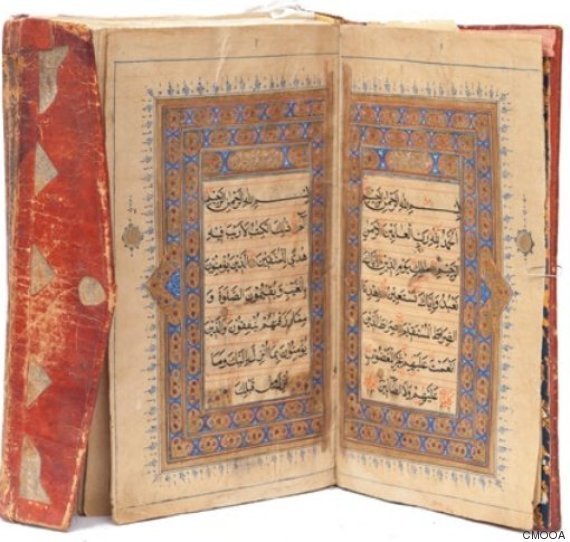 بسم الله الرحمن الرحيم
الحمد لله رب العالمين الرحمن
الرحيم ملك يوم الدين اياك
نعبد واياك نستعين اهدنا
الصراط المستقيم صراط الذين
انعمت عليهم غير المغضوب
عليهم ولا الضالين
بسم الله الرحمن الرحيم
الم ذلك الكتب لا ريب فيه
هدى للمتقين الذين يؤمنون
بالغيب ويقيمون الصلوة و
مما رزقنهم ينفقون والذين
يؤمنون بما انزل اليك وما
انزل من قبلك
CMOOA